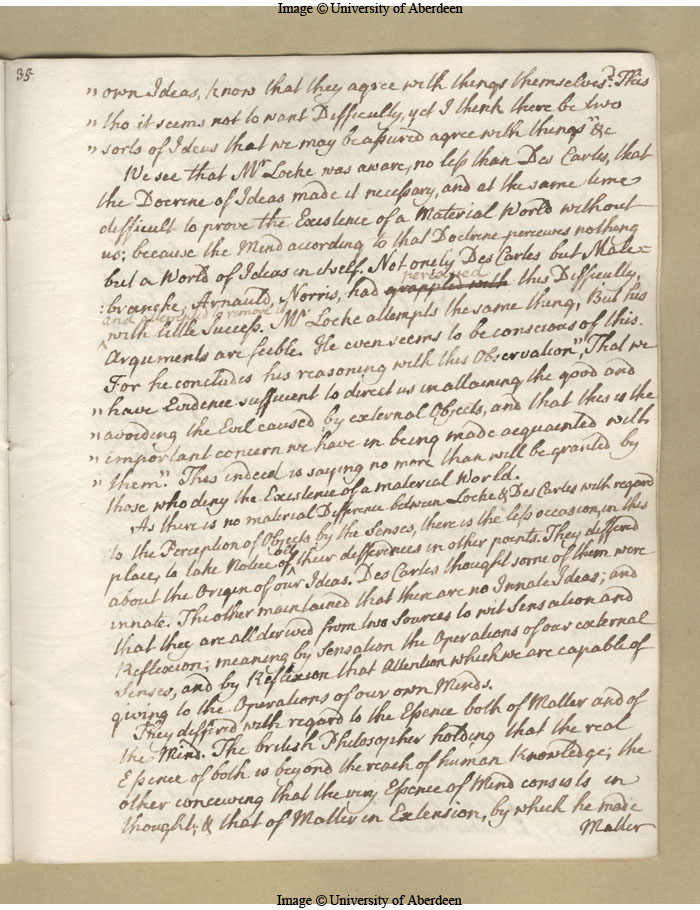 Image © University of Aberdeen
35
" own Ideas, know that they agree with things themselves? This
" tho it seems not to want Difficulty, yet I think there be two
" sorts of Ideas that we may be assured agree with things" &c
We see that Mr Locke was aware, no less than Des Cartes, that
the Doctrine of Ideas made it necessary, and at the same time
difficult to prove the Existence of a Material World without
us; because the Mind according to that Doctrine perceives nothing
but a World of Ideas in itself. Not onely Des Cartes but Male=
perceived
:branche, Arnauld, Norris, had grappled with this Difficulty,
and attempted to remove it
with little success. Mr Locke attempts the same thing, But his
Arguments are feeble. He even seems to be conscious of this.
For he concludes his reasoning with this Observation, "That we
" have Evidence sufficient to direct us in attaining the good and
" avoiding the Evil caused by external Objects, and that this is the
" important concern we have in being made acquainted with
" them". This indeed is saying no more than will be granted by
those who deny the Existence of a material World.
As there is no material Difference between Locke & Des Cartes with regard
to the Perception of Objects by the Senses, there is the less occasion, in this
place, to take Notice of all their differences in other points. They differd
about the Origin of our Ideas. Des Cartes thought some of them were
innate. The other maintained that there are no Innate Ideas; and
that they are all derived from two Sources to wit Sensation and
Reflexion; meaning by Sensation the Operations of our external
Senses, and by Reflexion that Attention which we are capable of
giving to the Operations of our own Minds.
They differed with regard to the Essence both of Matter and of
the Mind. The british Philosopher holding that the real
Essence of both is beyond the reach of human Knowledge; the
other conceiving that the very Essence of Mind consists in
thought; & that of Matter in Extension, by which he made
Matter
Image © University of Aberdeen